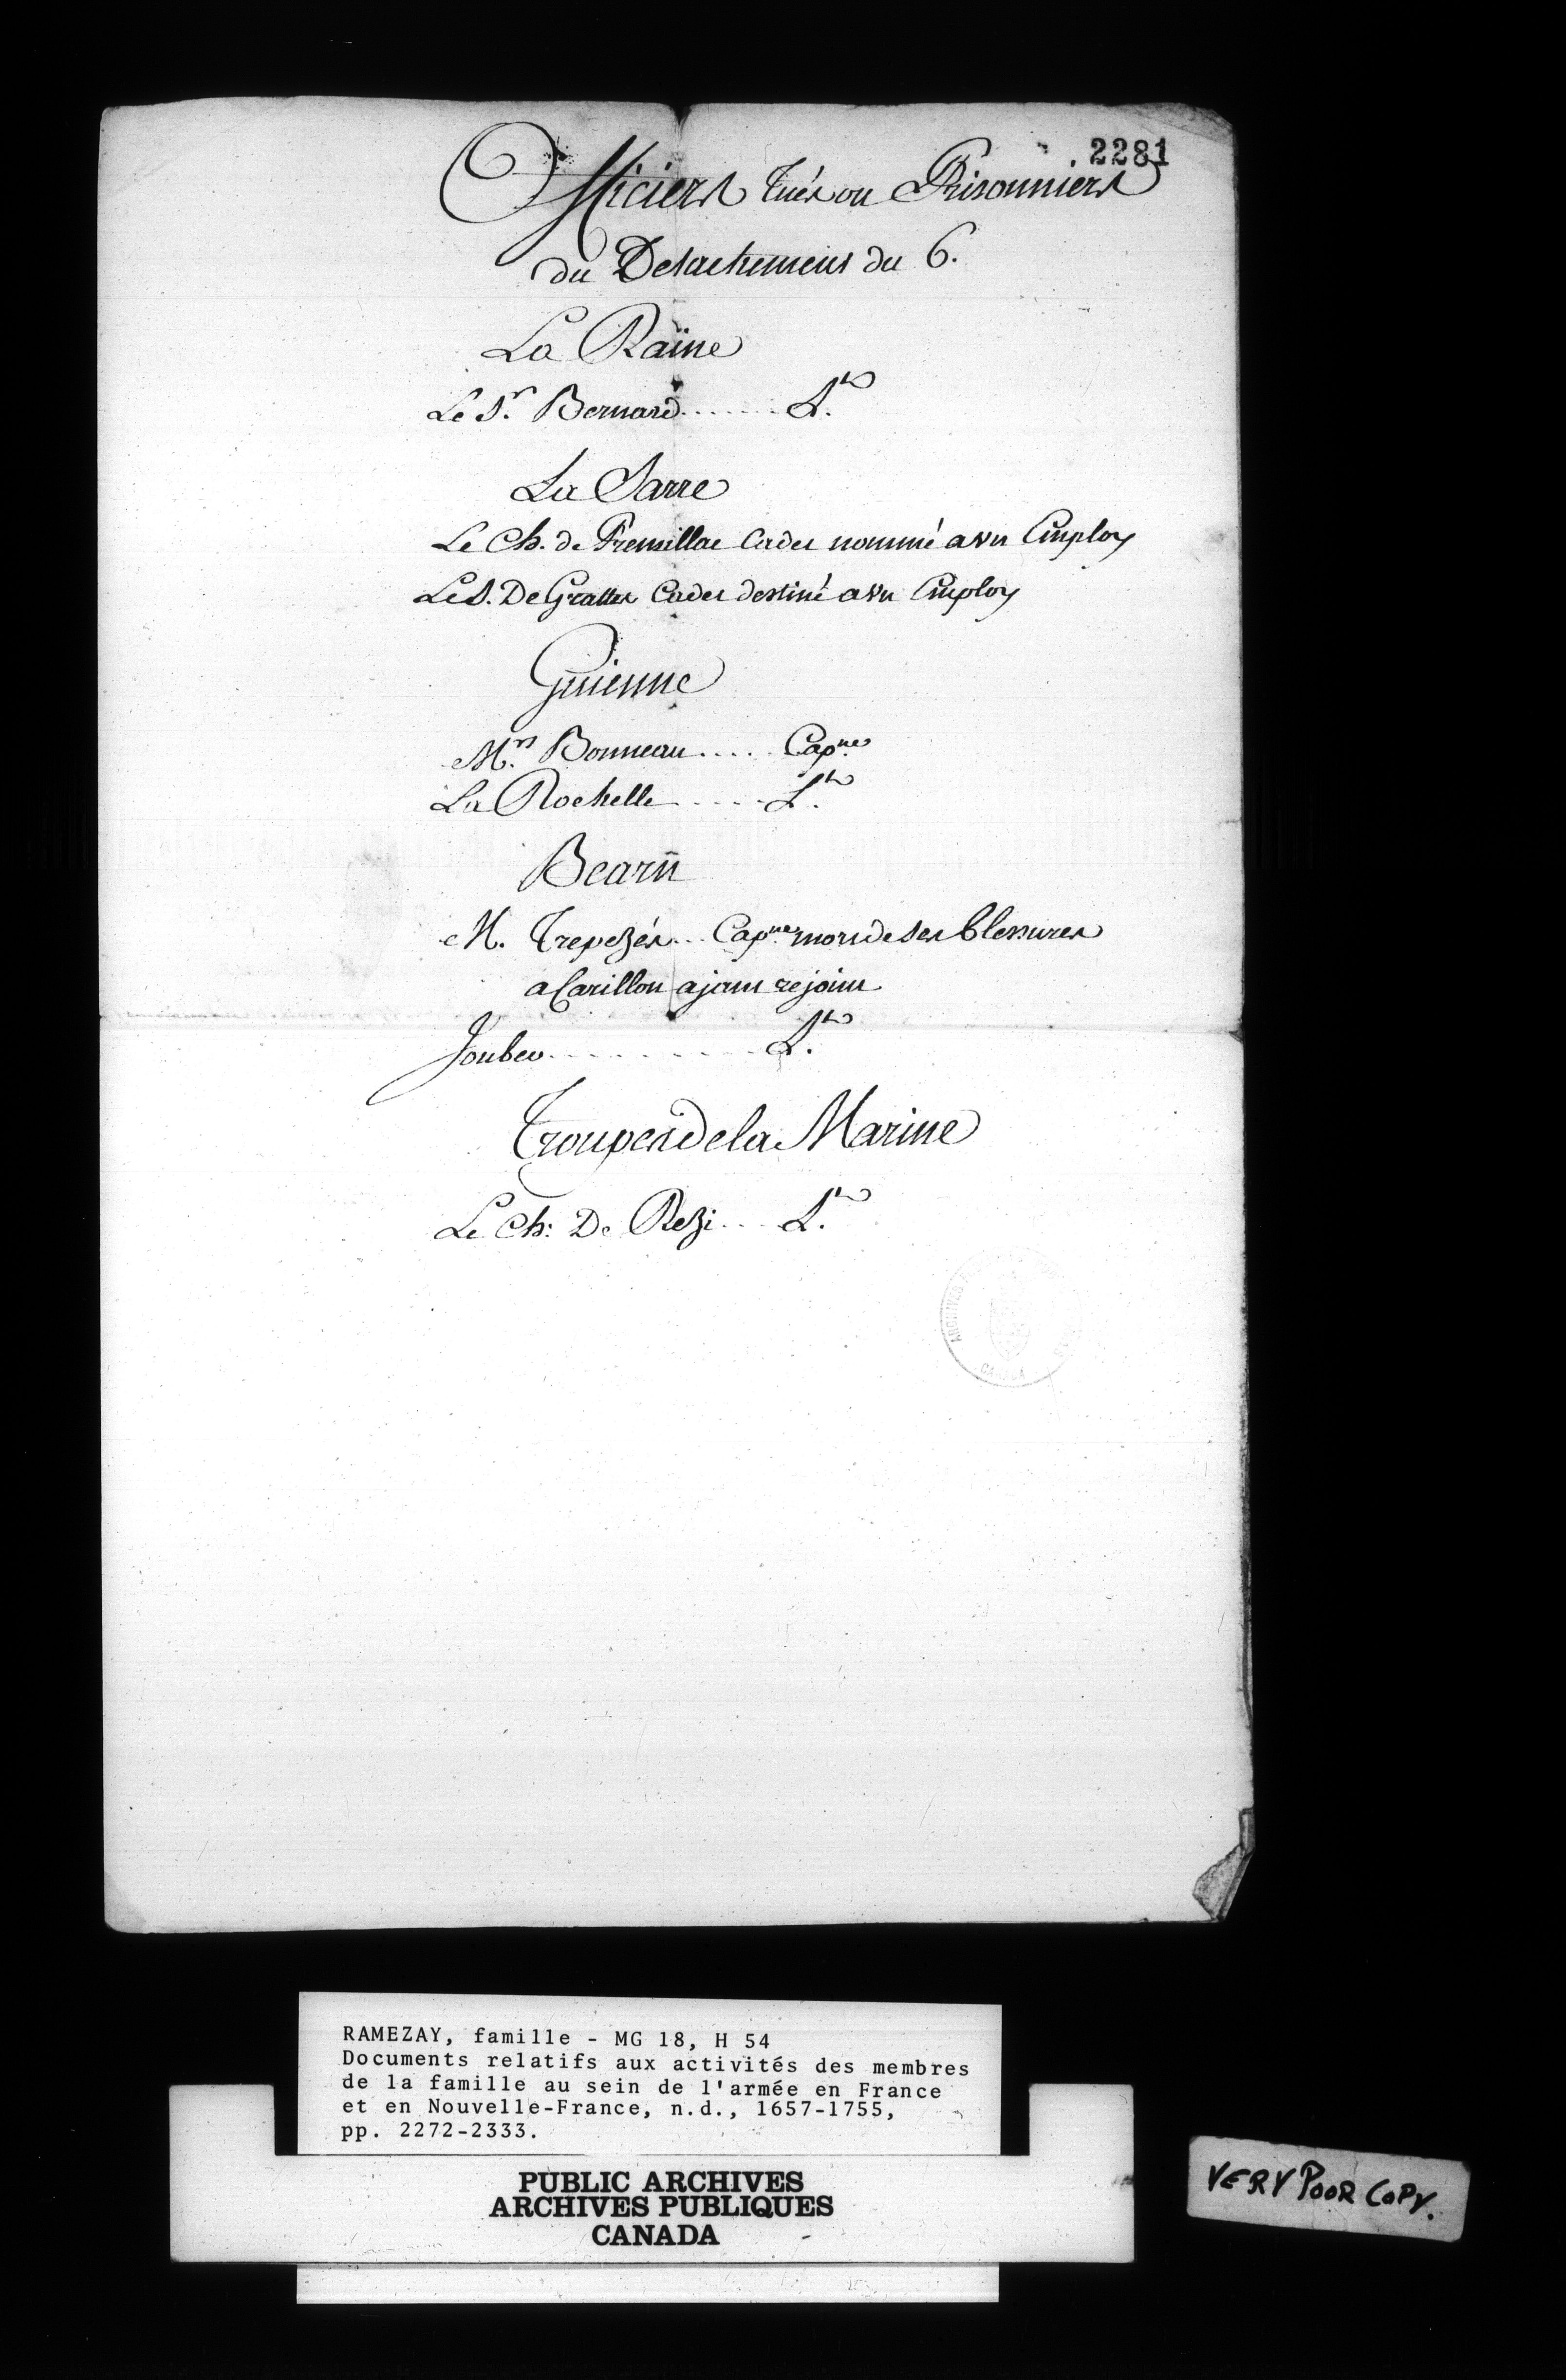 2281
Officiers tués ou Prisonniers
du Detachement du 6.
La Raine
Le Sr. Bernard....... Lt.
La Sarre
Le Ch. de Premillac Cadet nommé a un Employ
Le S. De Grattes Cadet destiné a un Employ
Guienne
Mrs. Bonneau..... Capne.
La Rochelle..... Lt.
Bearn
M. Trepezés... Capne. mort de ses blessures
a Carillon ajant rejoint
Joubert........... Lt.
Troupes de la Marine
Le Ch: De Rezi.... Lt.
ARCHIVES
CANADA
RAMEZAY, famille - MG 18, H 54
Documents relatifs aux activités des membres
de la famille au sein de l'armée en France
et en Nouvelle-France, n.d., 1657-1755,
pp. 2272-2333.
PUBLIC ARCHIVES
ARCHIVES PUBLIQUES
CANADA
VERY POOR COPY.